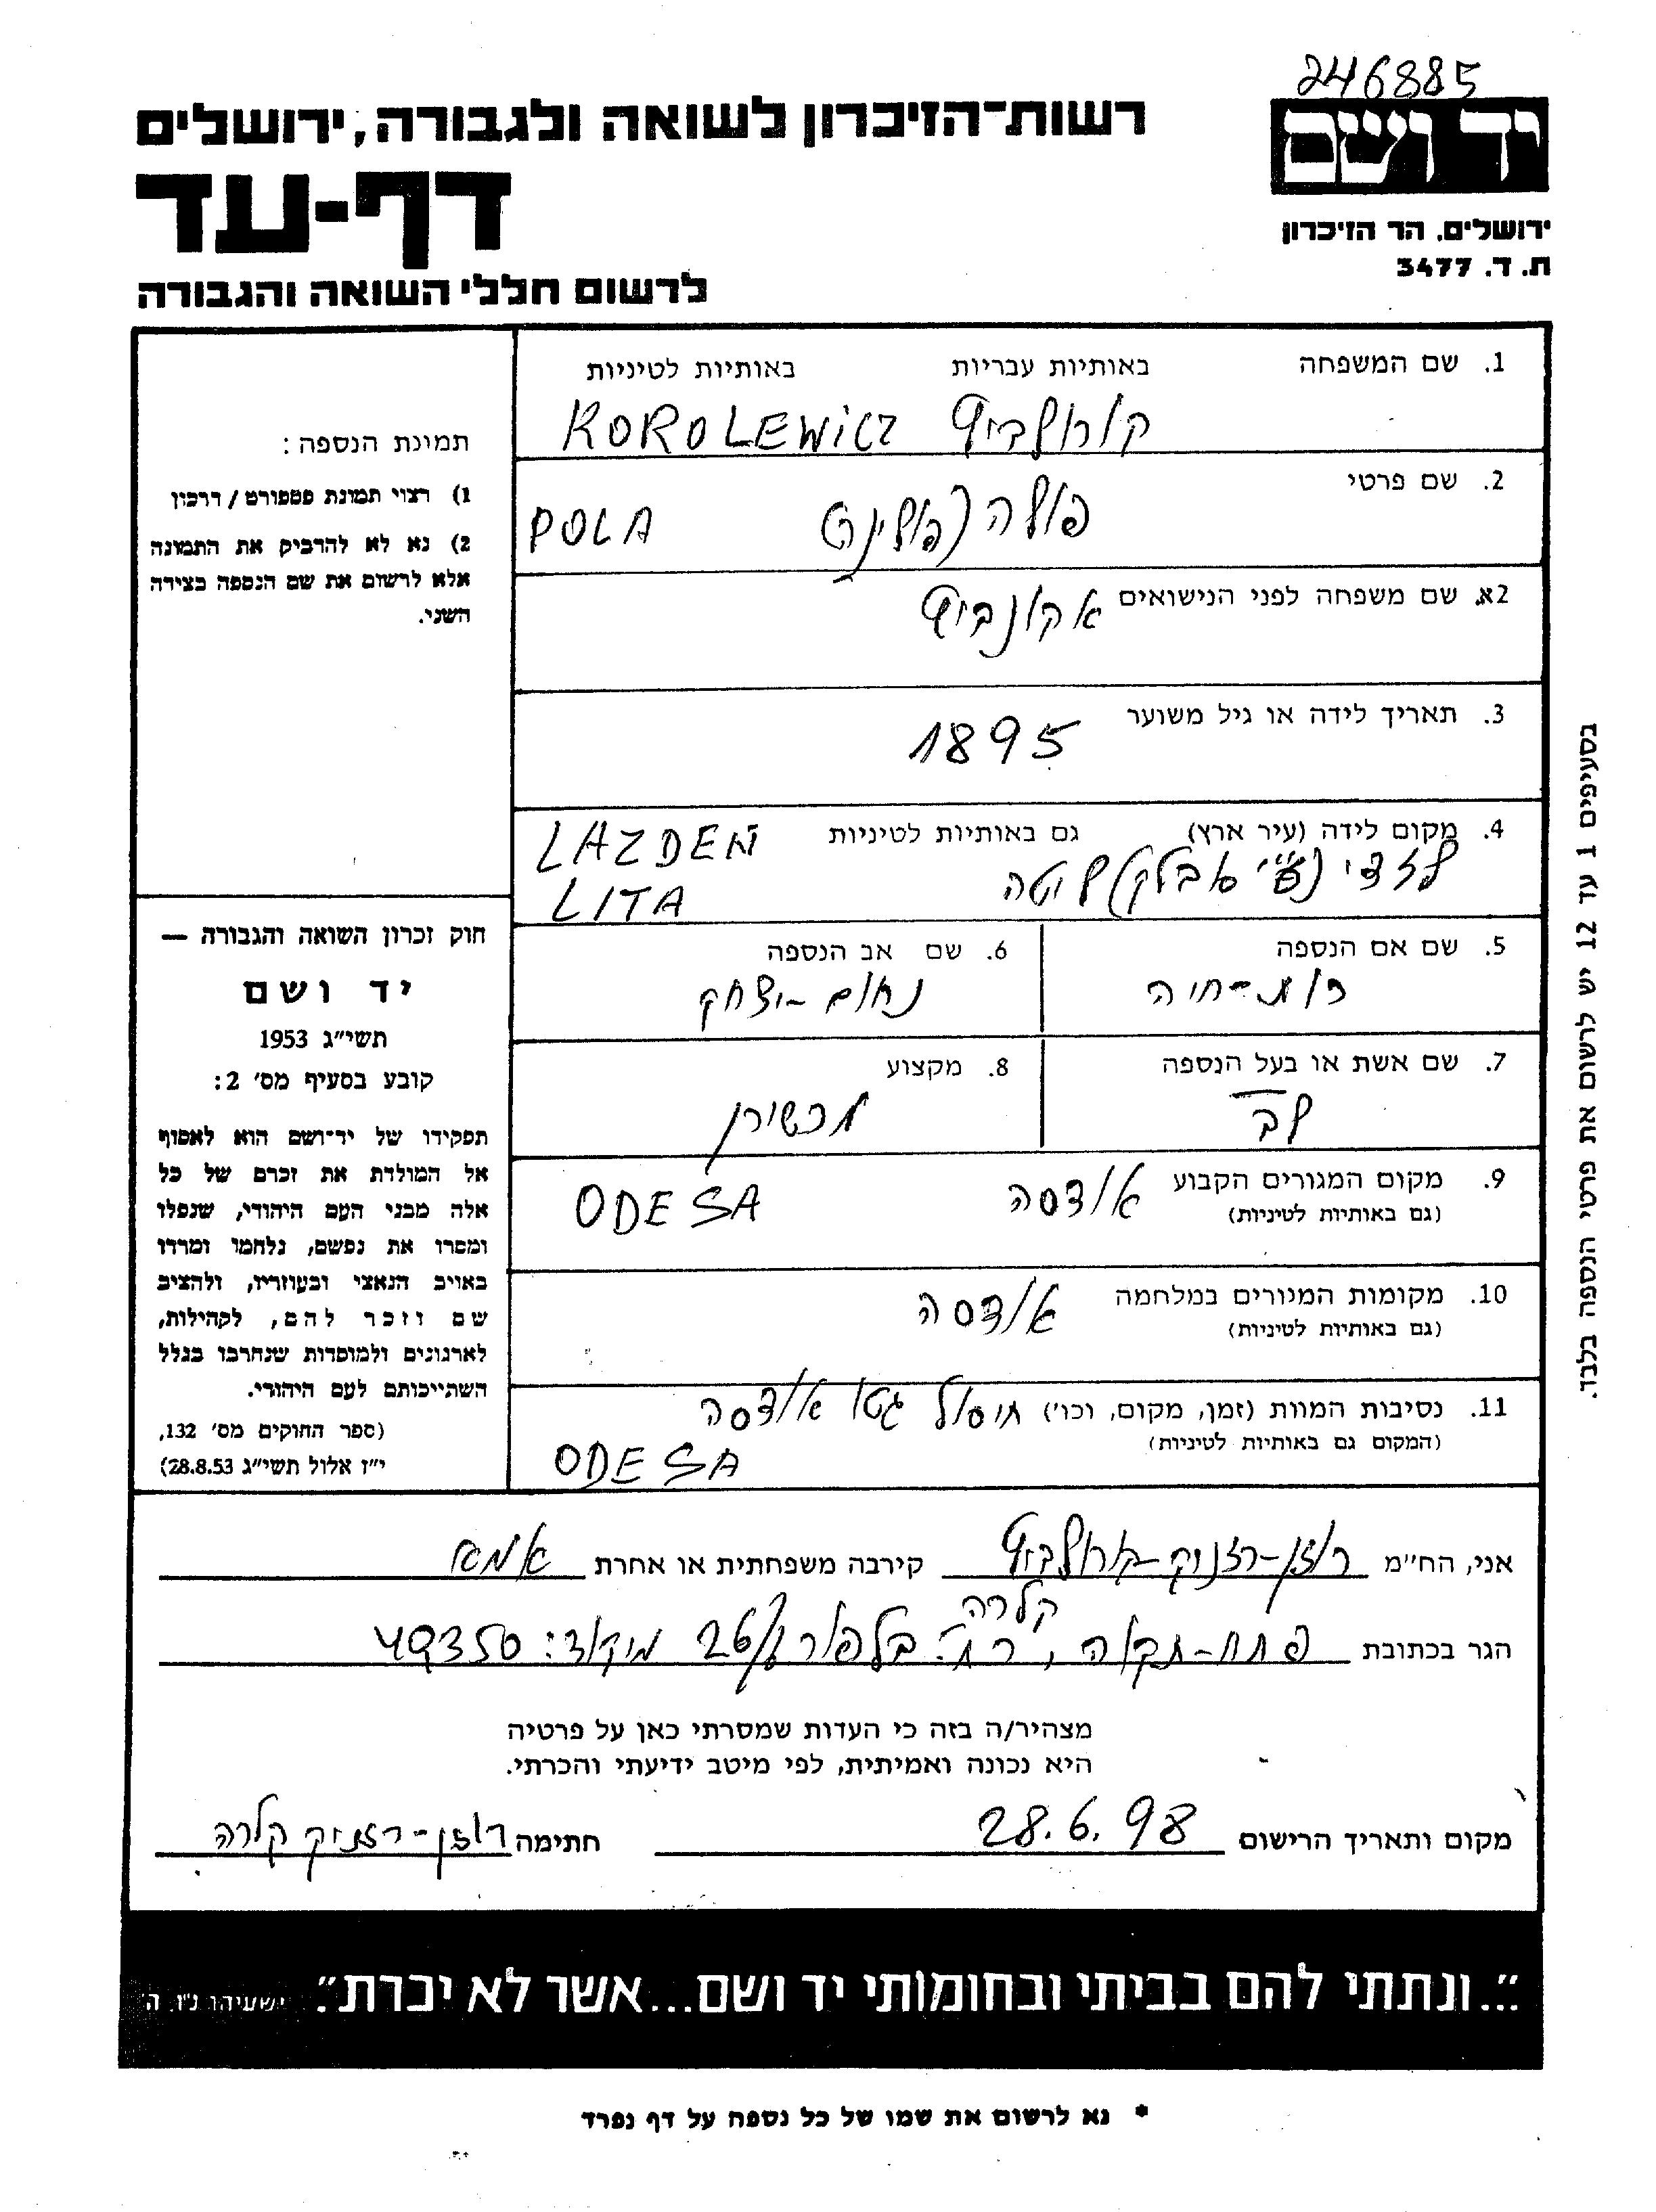 246885
יד ושם
ירושלים, הר הזיכרון
ת. ד. 3477
רשות־הזיכרון לשואה ולגבורה, ירושלים
דף-עד
לרשום חללי השואה והגבורה
1. שם המשפחה באותיות עבריות באותיות לטיניות
קורולביץ KOROLEWICZ
2. שם פרטי
פולה (פולינ POLA
2א. שם משפחה לפני הנישואים
3. תאריך לידה או גיל משוער 1895
4. מקום לידה (עיר ארץ) גם באותיות לטיניות LAZDEN
לזדי (ע"י סובלק) ליטה LITA
5. שם אם הנספה
חיה
6. שם אב הנספה
נחום-יצחק
7. שם אשת או בעל הנספה
לב
8. מקצוע
9. מקום המגורים הקבוע אודסה ODESA
(גם באותיות לטיניות)
10. מקומות המגורים במלחמה אודסה
(גם באותיות לטיניות)
11. נסיבות המוות (זמן, מקום, וכו') חיסול גטו אודסה
(המקום גם באותיות לטיניות) ODESA
תמונת הנספה:
1) רצוי תמונת פספורט / דרכון
2) נא לא להדביק את התמונה
אלא לרשום את שם הנספה בצידה
השני.
חוק זכרון השואה והגבורה —
יד ושם
תשי"ג 1953
קובע בסעיף מס' 2:
תפקידו של יד־ושם הוא לאסוף
אל המולדת את זכרם של כל
אלה מבני העם היהודי, שנפלו
ומסרו את נפשם, נלחמו ומרדו
באויב הנאצי ובעוזריו, ולהציב
שם וזכר להם, לקהילות,
לארגונים ולמוסדות שנחרבו בגלל
השתייכותם לעם היהודי.
(ספר החוקים מס' 132,
י"ז אלול תשי"ג 28.8.53)
בסעיפים 1 עד 12 יש לרשום את פרטי הנספה בלבד.
אני, הח"מ רוזן-רזניק-קורולביץ קירבה משפחתית או אחרת אמא
קלרה
הגר בכתובת פתח-תקוה, רח' בלפור 26 מיקוד: 49350
מצהיר/ה בזה כי העדות שמסרתי כאן על פרטיה
היא נכונה ואמיתית, לפי מיטב ידיעתי והכרתי.
מקום ותאריך הרישום 28.6.98 חתימה רוזן-רזניק קלרה
"...ונתתי להם בביתי ובחומותי יד ושם...אשר לא יכרת". ישעיהו נ"ו, ה
* נא לרשום את שמו של כל נספה על דף נפרד